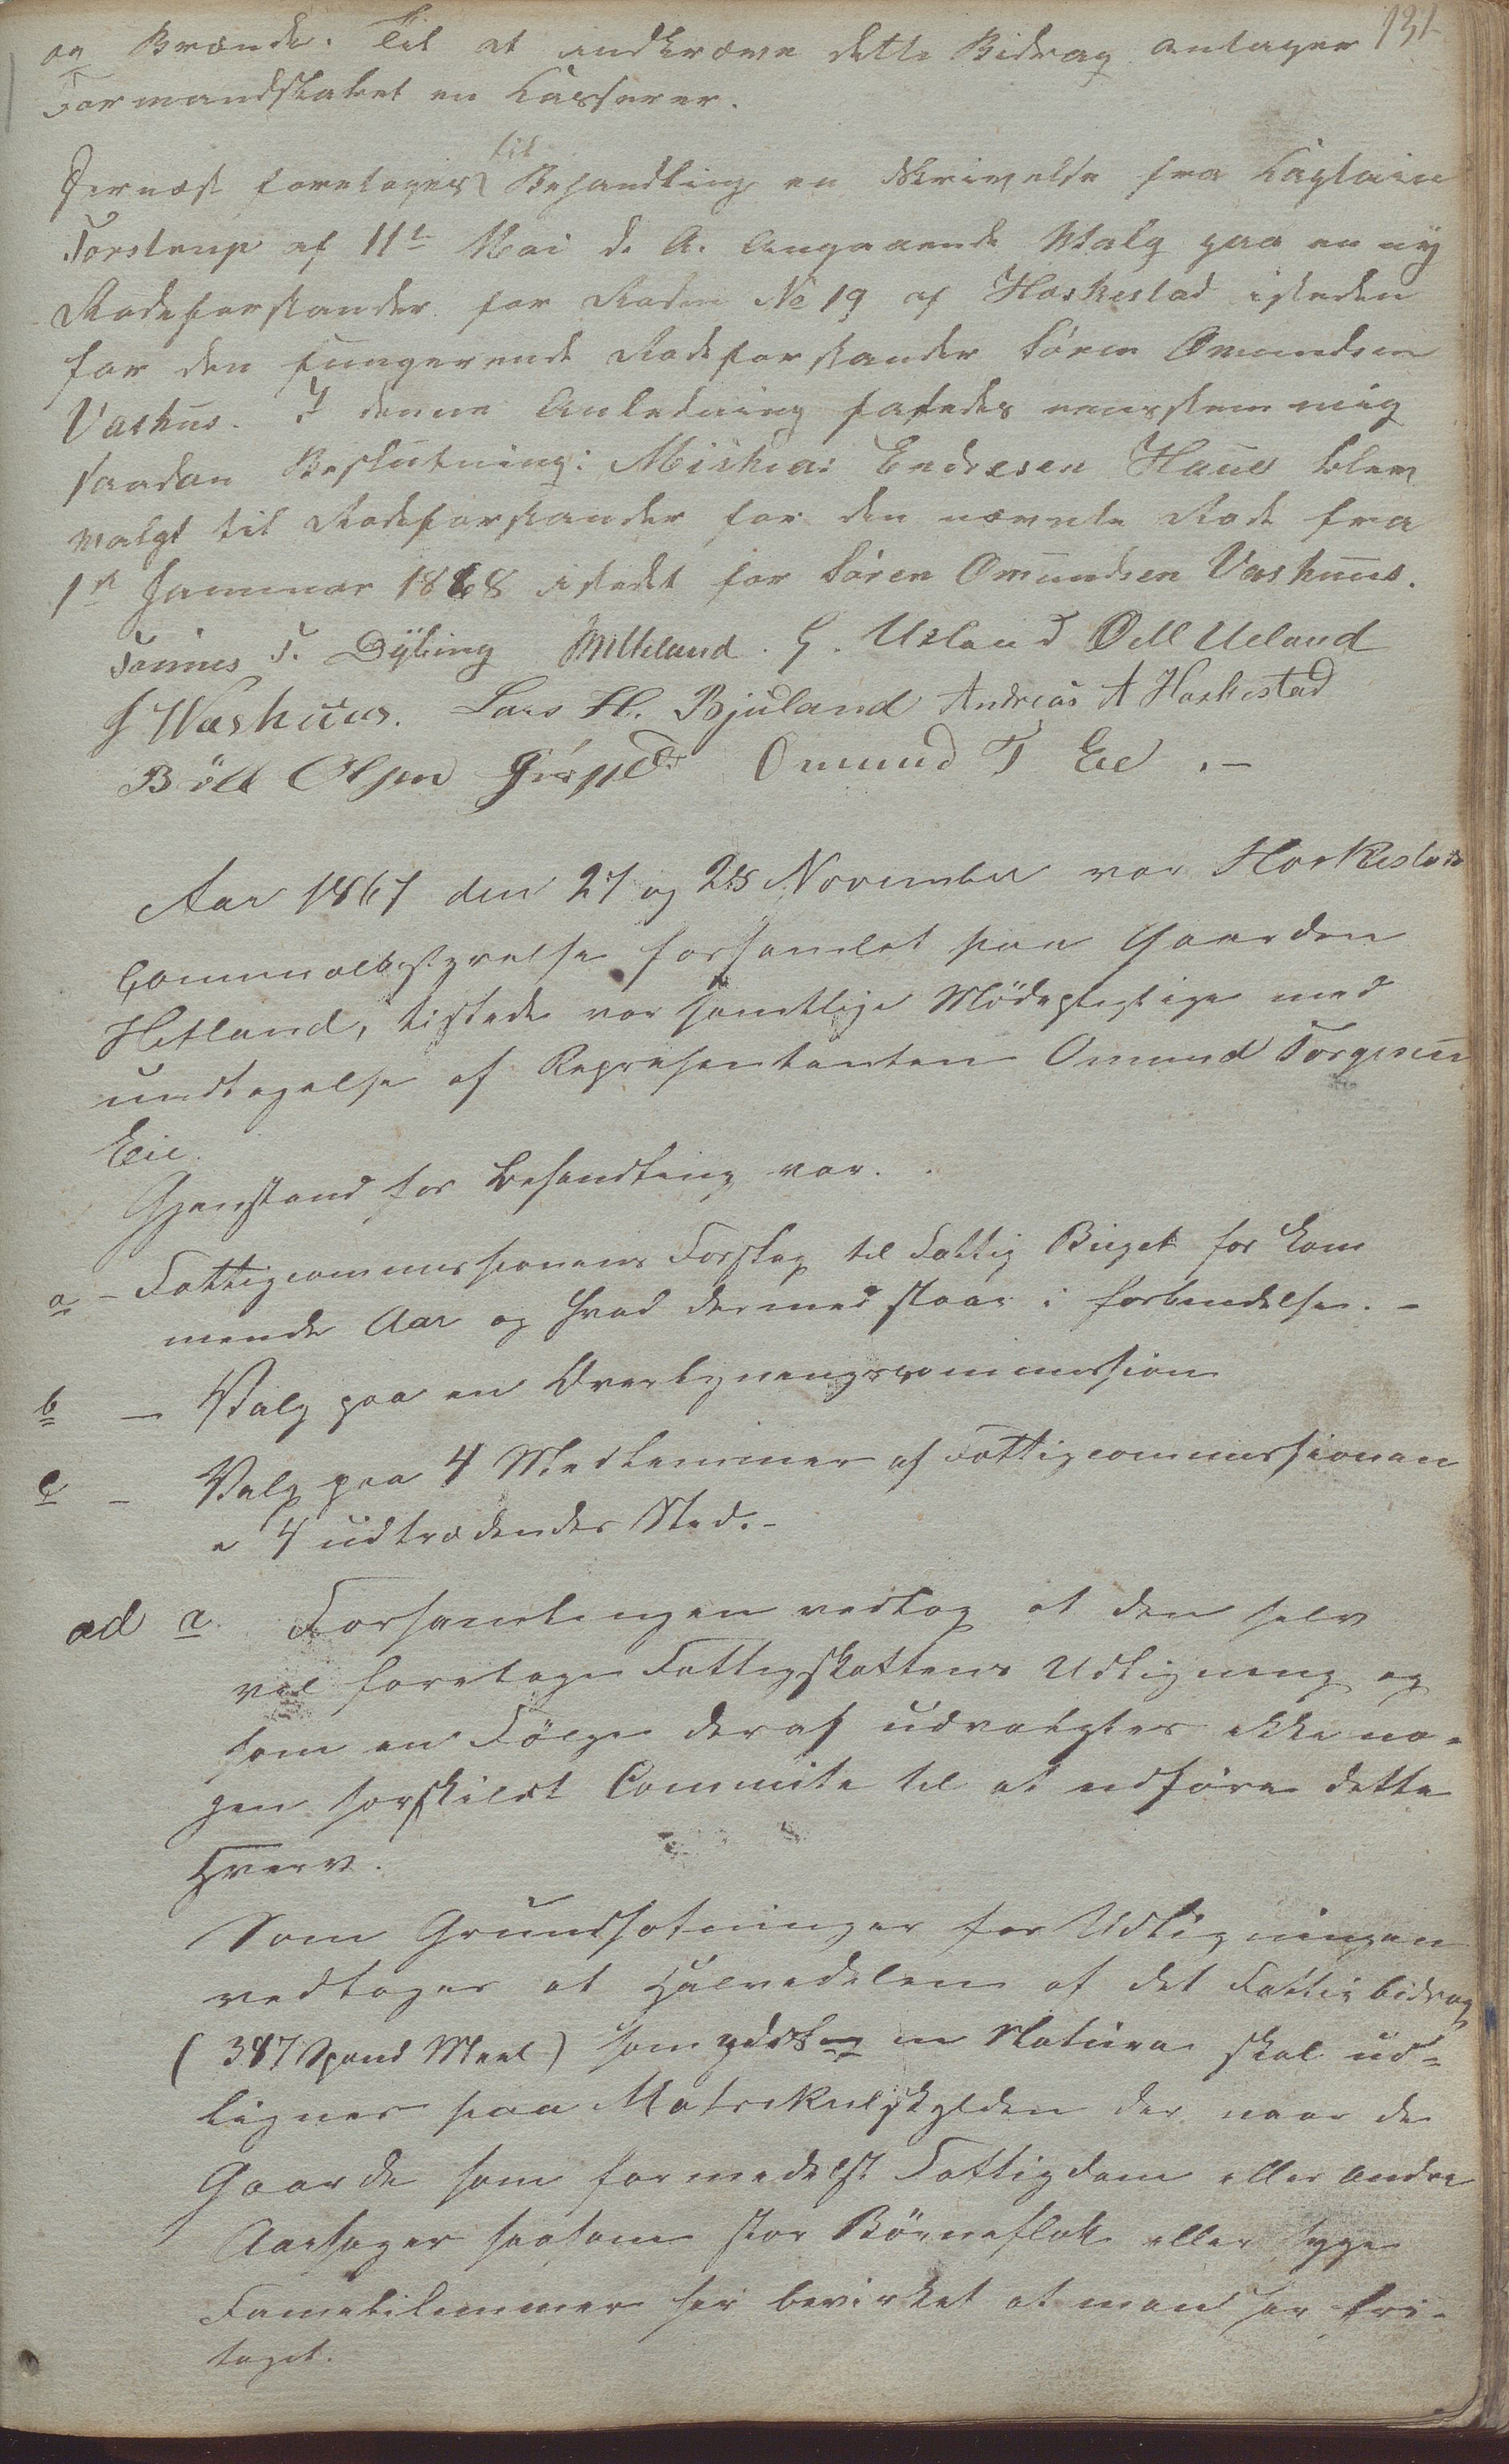 131
og Brænde. Til at indkræve dette Bidrag antager
Formandskabet en Kasserer.
Dernæst foretages til Behandling en Skrivelse fra Captain
Torstrup af 11te Mai d. A. angaaende Valg paa en ny
Rodeforstander for Roden No 19 af Haskestad isteden
for den fungerende Rodeforstander Sören Omundsen
Vashus. I denne Anledning fatedes eenstemmig
saadan Beslutning: Mikkel Endresen Haue blev
valgt til Rodeforstander for den nævnte Rode fra
1st Januar 1868 istedet for Sören Omundsen Vashuus.
Tönnes T. Dybing Mikkeland. G. Ueland Odd Ueland
S Washuus. Lars H. Bjuland Andreas A Haskestad
Böll Olsen Omund T Eie.-
Aar 1867 den 27 og 28 November var Hoskestad
Communalbestyrelse forsamlet paa Gaarden
Hetland, tilstede var samtlige Mödepligtige med
undtagelse af Representanten Omund Torgersen
Eie.
Gjenstand for behandling var.
a - Fattigcommissionens Forslag til Fattig Buget for kom
mende Aar og hvad dermed staar i forbindelse. -
b - Valg paa en Overligningscommission
c - Valg paa 4 Medlemmer af Fattigcommissionen
i 4 udtrædendes Sted.-
ad a. Forsamlingen vedtog at den selv
vil foretage Fattigskattens Udligning og
som en Fölge deraf udvalgtes ikke no-
gen sorskildt Commite til at udföre dette
Hverv.
Som Grundsætninger for Udligningen
vedtages at Halvedelen af det Fattigbidrag
(387 Spand Meel) som ydes in Natura skal ud=
lignes paa Matrikulskylden der naar de
Gaarde som formedelst Fattigdom eller andre
Aarsager saasom stor Börneflok eller syge
Famililemmer har bevirket at man har fri-
taget.